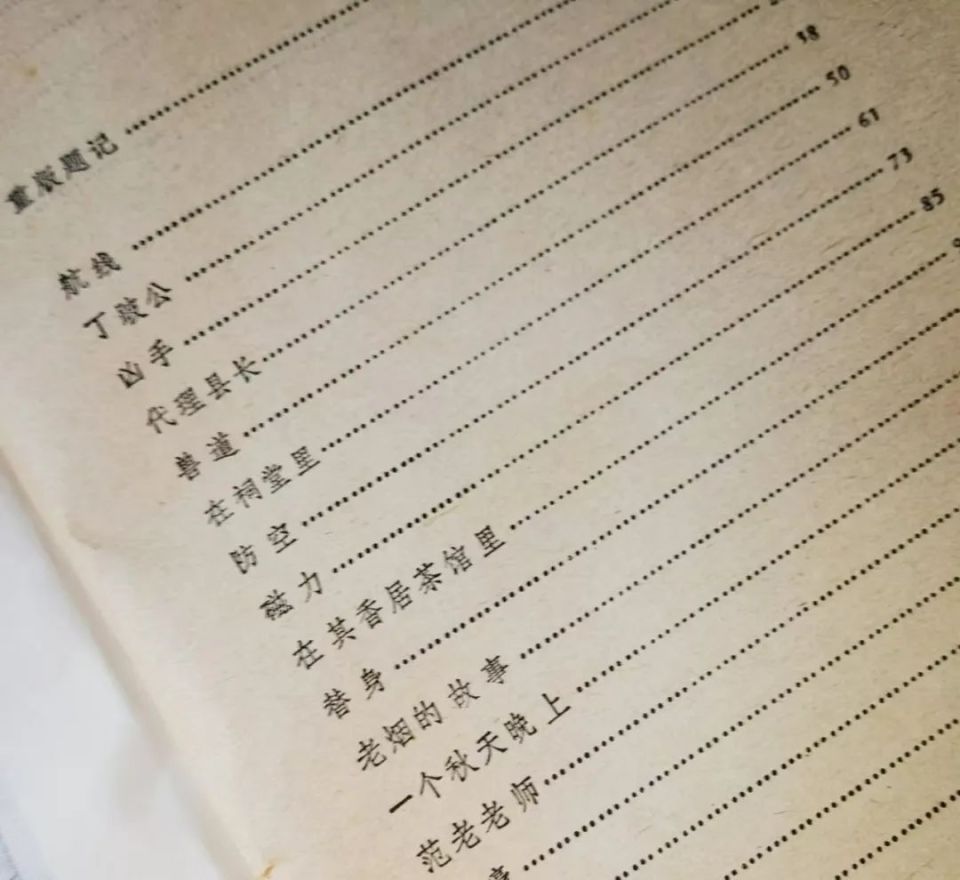 重版题记
航线
丁跛公
凶手
代理县长 38
兽道 50
在祠堂里 61
防空 73
磁力 85
在其香居茶馆里
替身
老烟的故事
一个秋天晚上
范老老师